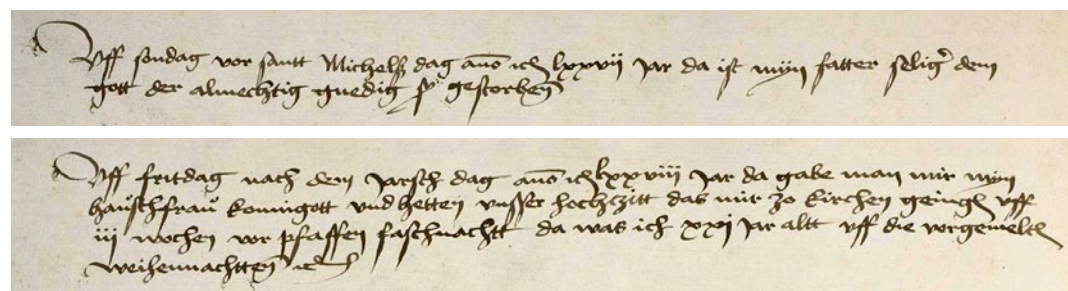 Uff sondag vor santt Michelß dag ano ⁊c lxxvij Jar da ist mijn fatter selig dem
gott der almechtig gnedig sy gestorben
Uff fritdag nach dem Jarsch dag ano ⁊c lxxviii Jar da gabe man mir myn
haußchfrau koningott vnd hetten vnsser hochczitt das mir zo kirchen geingen uff
iij wochen vor pfaffen faschnachtt da was ich xxj Jar altt uff die vorgemelten
weihennachtten